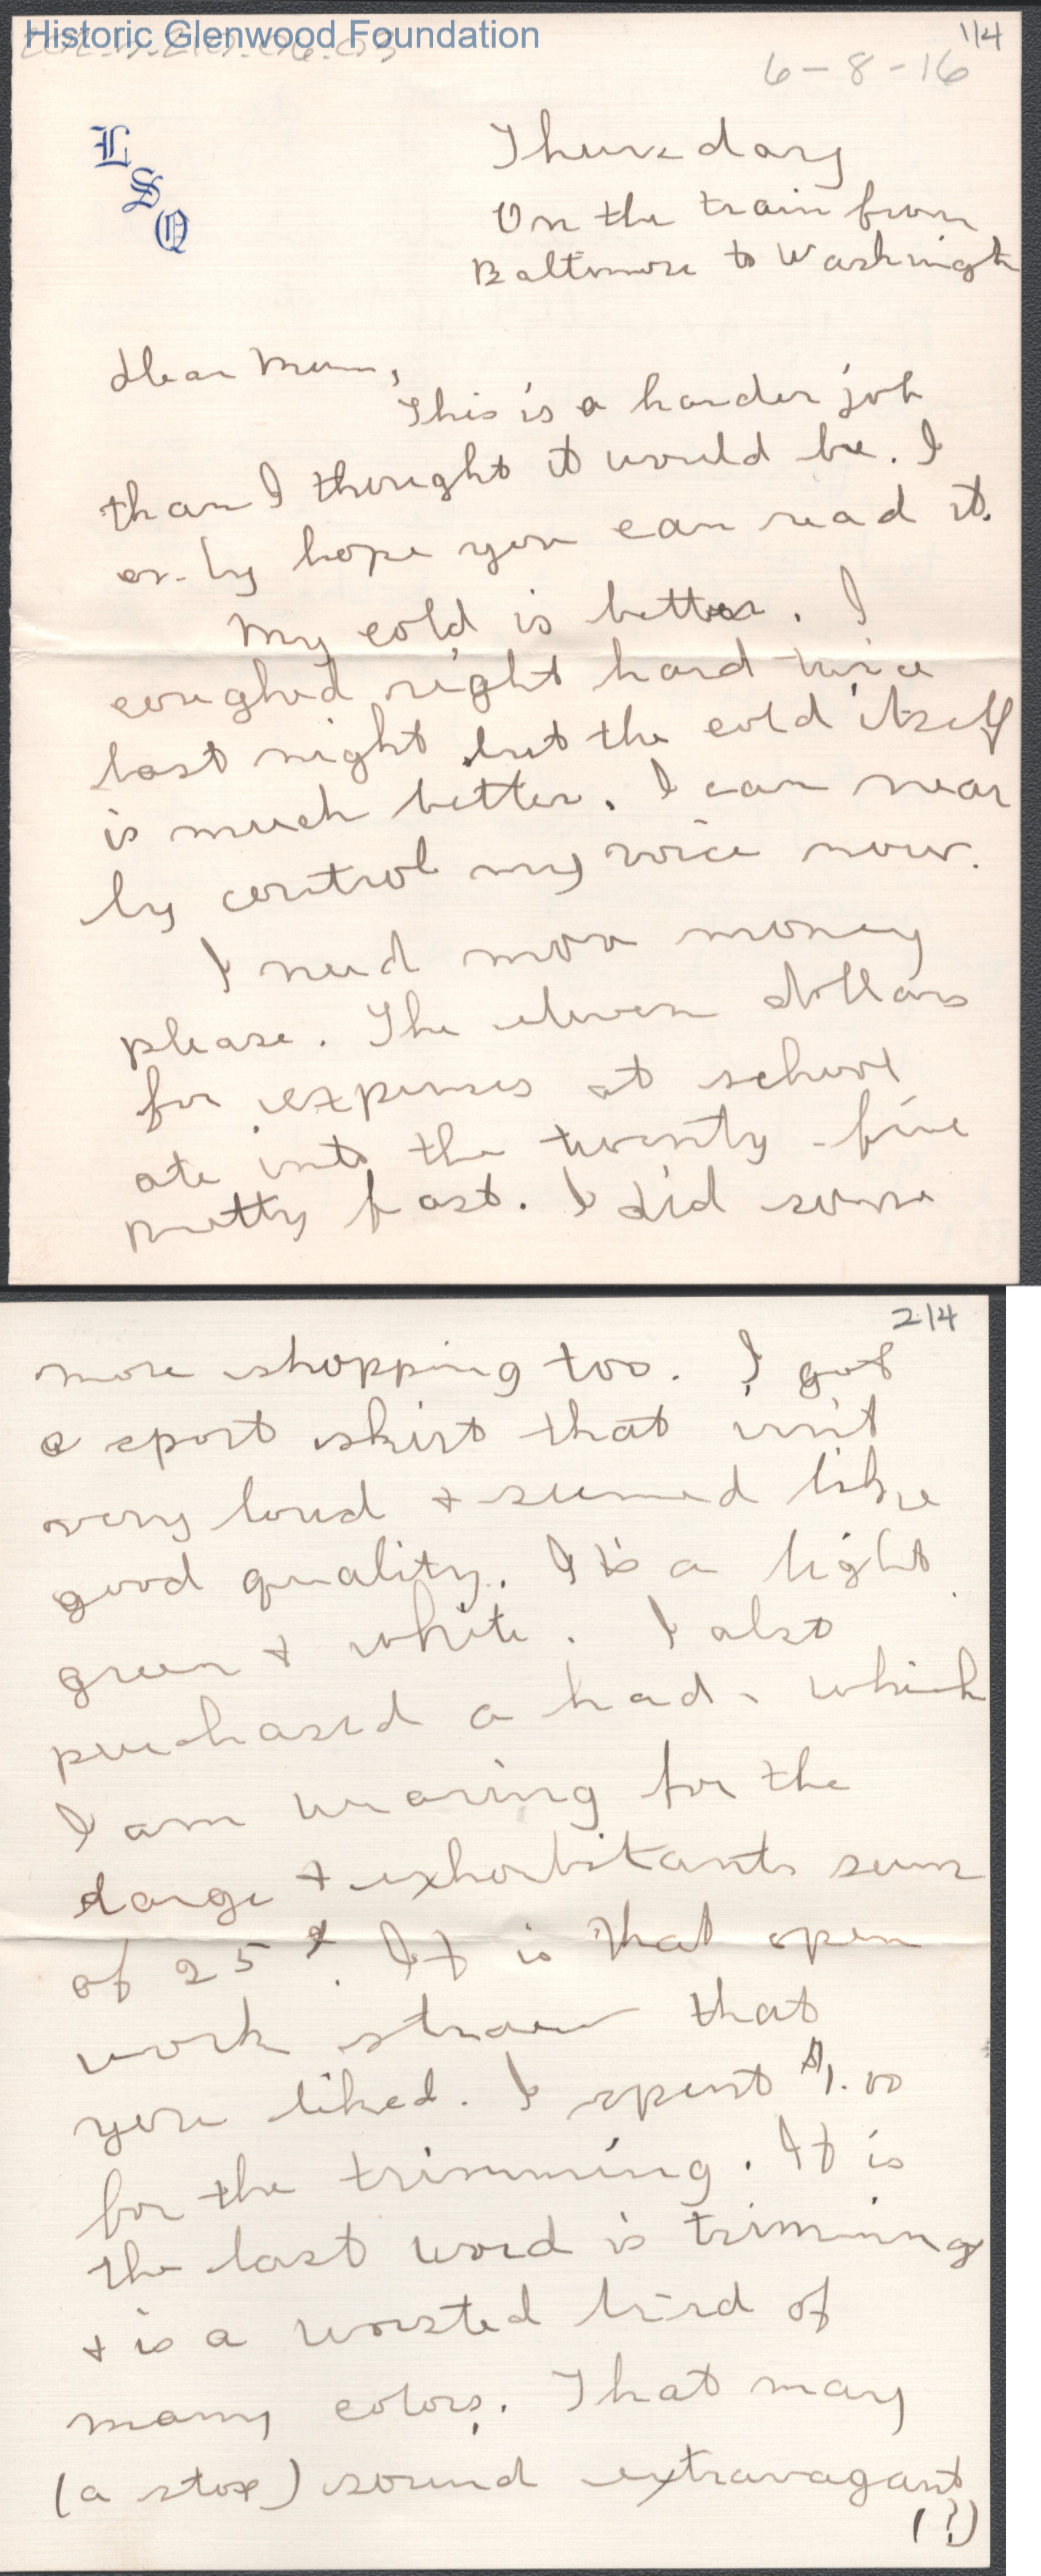 Historic Glenwood Foundation
1/4
6-8-16
L
S
Q
Thursday
On the train from
Baltimore to Washingt
Dear Mum,
This is a harder job
than I thought it would be. I
only hope you can read it.
My cold is better. I
coughed right hard twice
last night but the cold itself
is much better. I can near
ly control my voice now.
I need more money
please. The eleven dollars
for expenses at school
ate into the twenty-five
pretty fast. I did some
2/4
more shopping too. I got
a sport skirt that isn't
very loud & seemed like
good quality. It's a light
green & white. I also
purchased a had. which
I am wearing for the
large & exhorbitants sum
of 25¢. It is that open
work straw that
you liked. I spent $1.00
for the trimming. It is
the last word is trimming
& is a worsted bird of
many colors. That may
(a stop) sound extravagant
(?)